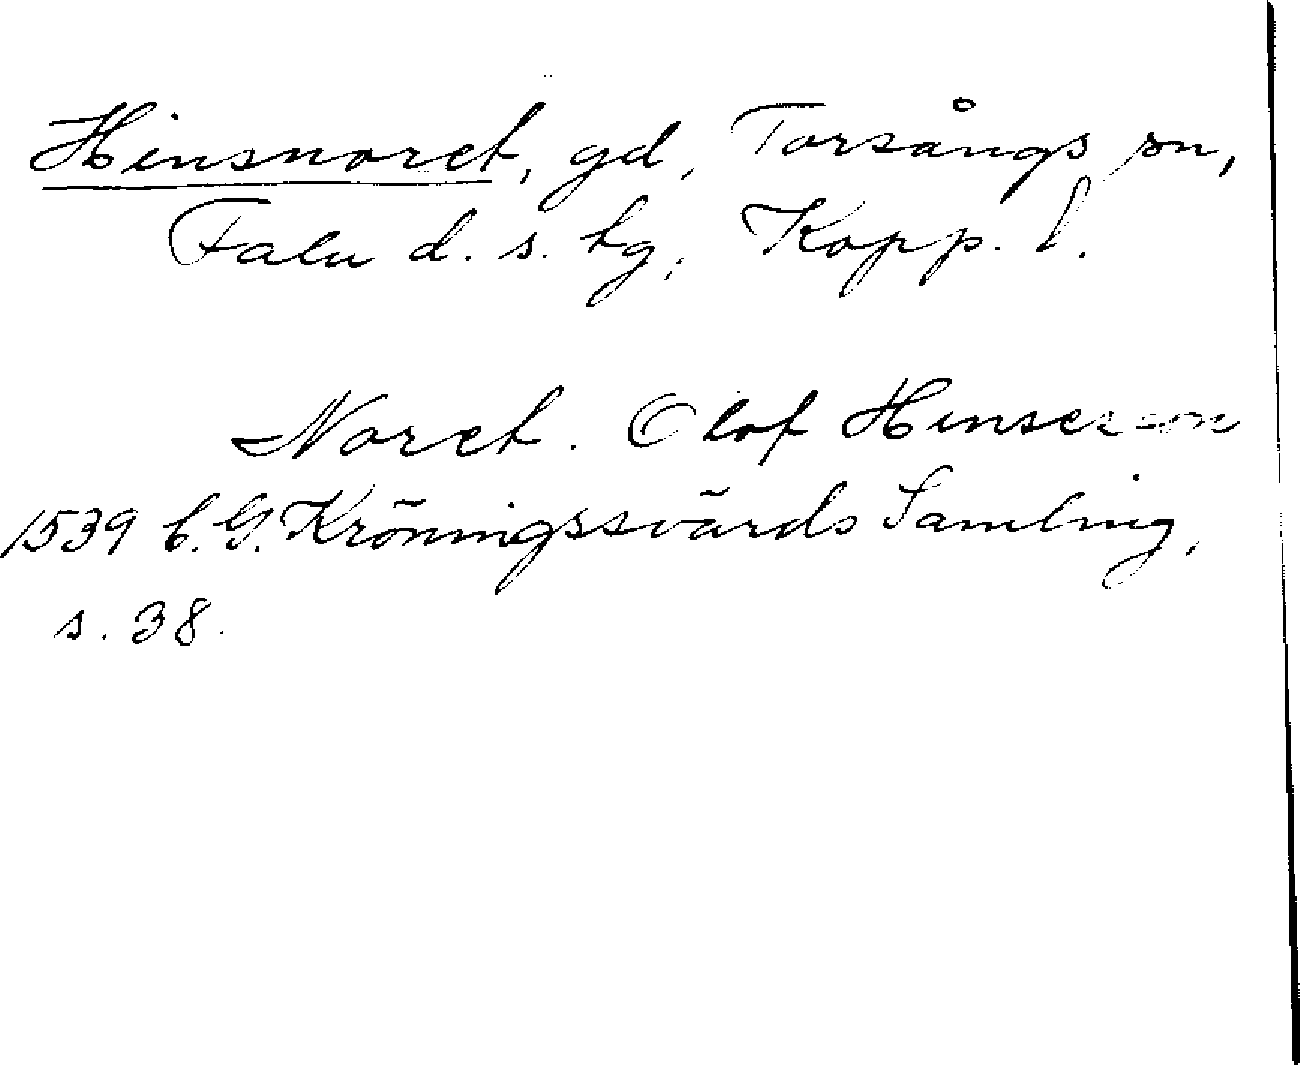 Hinsnoret, gd, Torsångs sn,
Falu d. s. hg, Kopp. l.
Noret. Olof Hinsesson
1539 C. G. Kröningssvärds Samling,
s. 38.